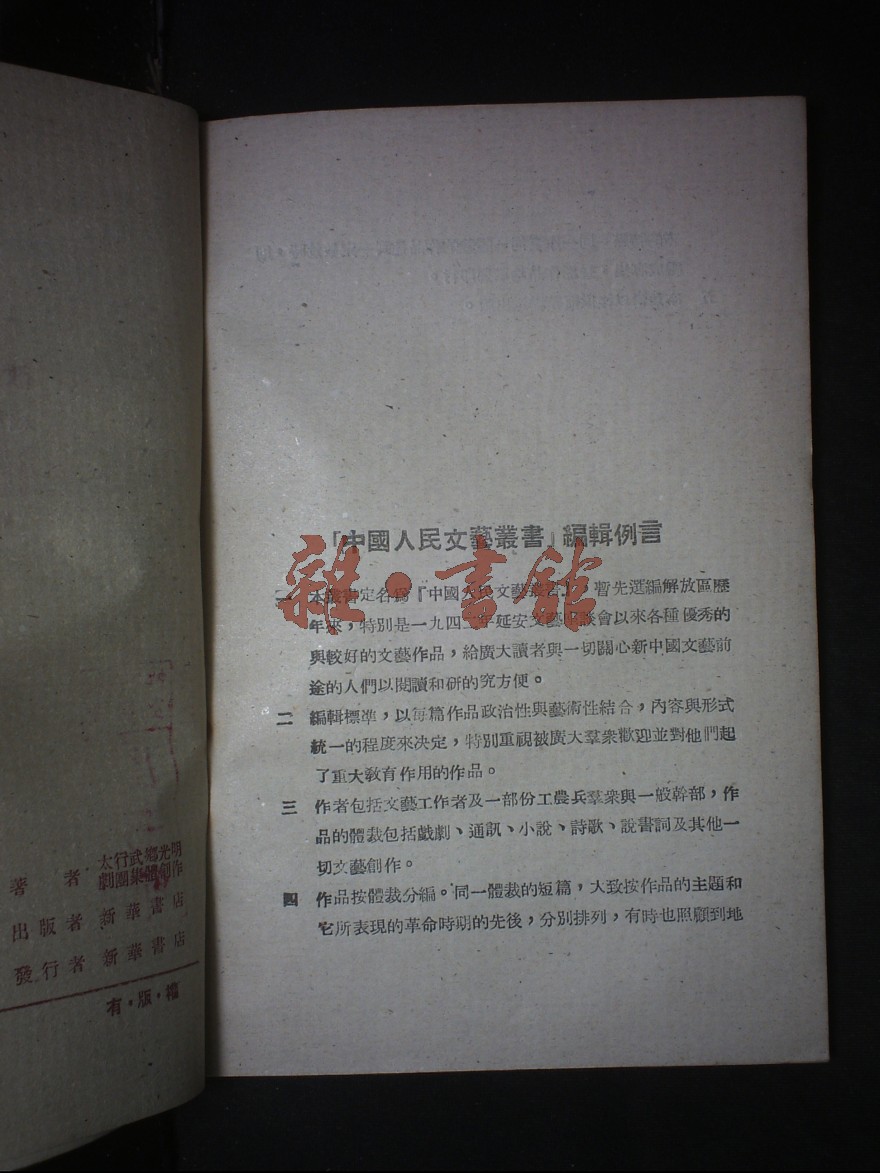 著者 太行武鄉光明
劇團集體創作
出版者 新華書店
發行者 新華書店
有·版·權
「中國人民文藝叢書」編輯例言
一 本叢書定名爲『中國人民文藝叢書』,暫先選編解放區歷
年來,特別是一九四二年延安文藝座談會以來各種優秀的
與較好的文藝作品,給廣大讀者與一切關心新中國文藝前
途的人們以閱讀和研的究方便。
二 編輯標準,以每篇作品政治性與藝術性結合,內容與形式
統一的程度來決定,特別重視被廣大羣衆歡迎並對他們起
了重大敎育作用的作品。
三 作者包括文藝工作者及一部份工農兵羣衆與一般幹部,作
品的體裁包括戲劇、通訊、小說、詩歌、說書詞及其他一
切文藝創作。
四 作品按體裁分編。同一體裁的短篇,大致按作品的主題和
它所表現的革命時期的先後,分別排列,有時也照顧到地
雜·書館